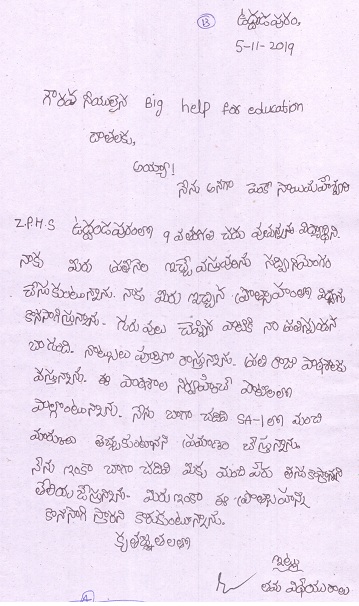 B
ఉద్దండపురం,
5-11-2019
గౌరవనీయులైన Big help for education
దాతలకు,
అయ్యా!
నేను అనగా
Z.P.H.S ఉద్దండపురంలో 9 వ తరగతి చదువుతున్న విద్యార్థిని.
నాకు మీరు ప్రతినెల ఇచ్చే వస్తువులను సద్వినియోగం
చేసుకుంటున్నాను. నాకు మీరు ఇచ్చిన ప్రోత్సాహంతో విద్యను
కొనసాగిస్తున్నాను. గురువులు చెప్పిన వాటికి నా ప్రతిస్పందన
బాగుంది. నోట్సులు పూర్తిగా రాస్తున్నాను. ప్రతి రోజు పాఠశాలకు
వస్తున్నాను. ఈ పాఠశాల నిర్వహించే పోటీలలో
పాల్గొంటున్నాను. నేను బాగా చదివి SA-1 లో మంచి
మార్కులు తెచ్చుకుంటానని ప్రమాణం చేస్తున్నాను.
నేను ఇంకా బాగా చదివి మీకు మంచి పేరు
తెలియజేస్తున్నాను. మీరు ఇంకా ఈ ప్రోత్సాహాన్ని
కొనసాగిస్తారని కోరుకుంటున్నాను.
కృతజ్ఞతలతో
ఇట్లు
తమ విధేయురాలు
A